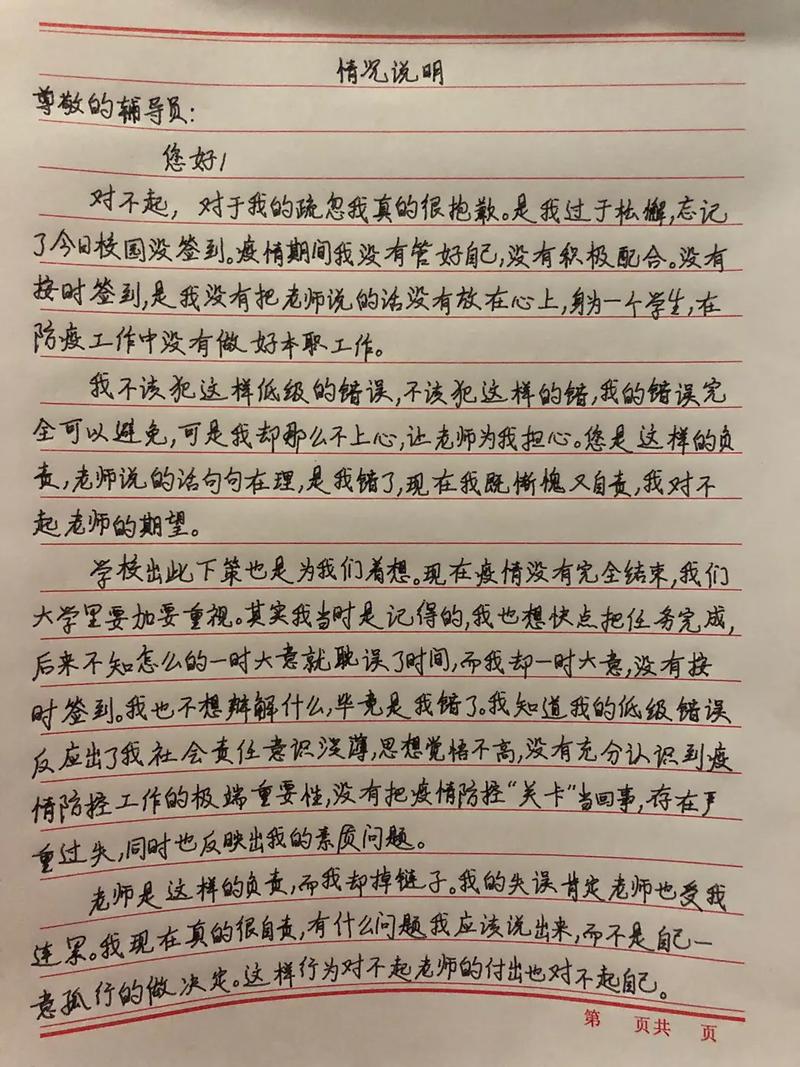 情况说明
尊敬的辅导员:
您好!
对不起,对于我的疏忽我真的很抱歉。是我过于松懈,忘记
了今日校园没签到。疫情期间我没有管好自己,没有积极配合。没有
按时签到,是我没有把老师说的话没有放在心上,身为一个学生,在
防疫工作中没有做好本职工作。
我不该犯这样低级的错误,不该犯这样的错,我的错误完
全可以避免,可是我却那么不上心,让老师为我担心。您是这样的负
责,老师说的话句句在理,是我错了,现在我既惭愧又自责,我对不
起老师的期望。
学校出此下策也是为我们着想。现在疫情没有完全结束,我们
大学里要加要重视。其实我当时是记得的,我也想快点把任务完成,
后来不知怎么的一时大意就耽误了时间,而我却一时大意,没有按
时签到。我也不想辩解什么,毕竟是我错了。我知道我的低级错误
反应出了我社会责任意识浅薄,思想觉悟不高,没有充分认识到疫
情防控工作的极端重要性,没有把疫情防控“关卡”当回事,存在严
重过失,同时也反映出我的素质问题。
老师是这样的负责,而我却掉链子。我的失误肯定老师也受我
连累。我现在真的很自责,有什么问题我应该说出来,而不是自己一
意孤行的做决定。这样行为对不起老师的付出也对不起自己。
第 页共 页